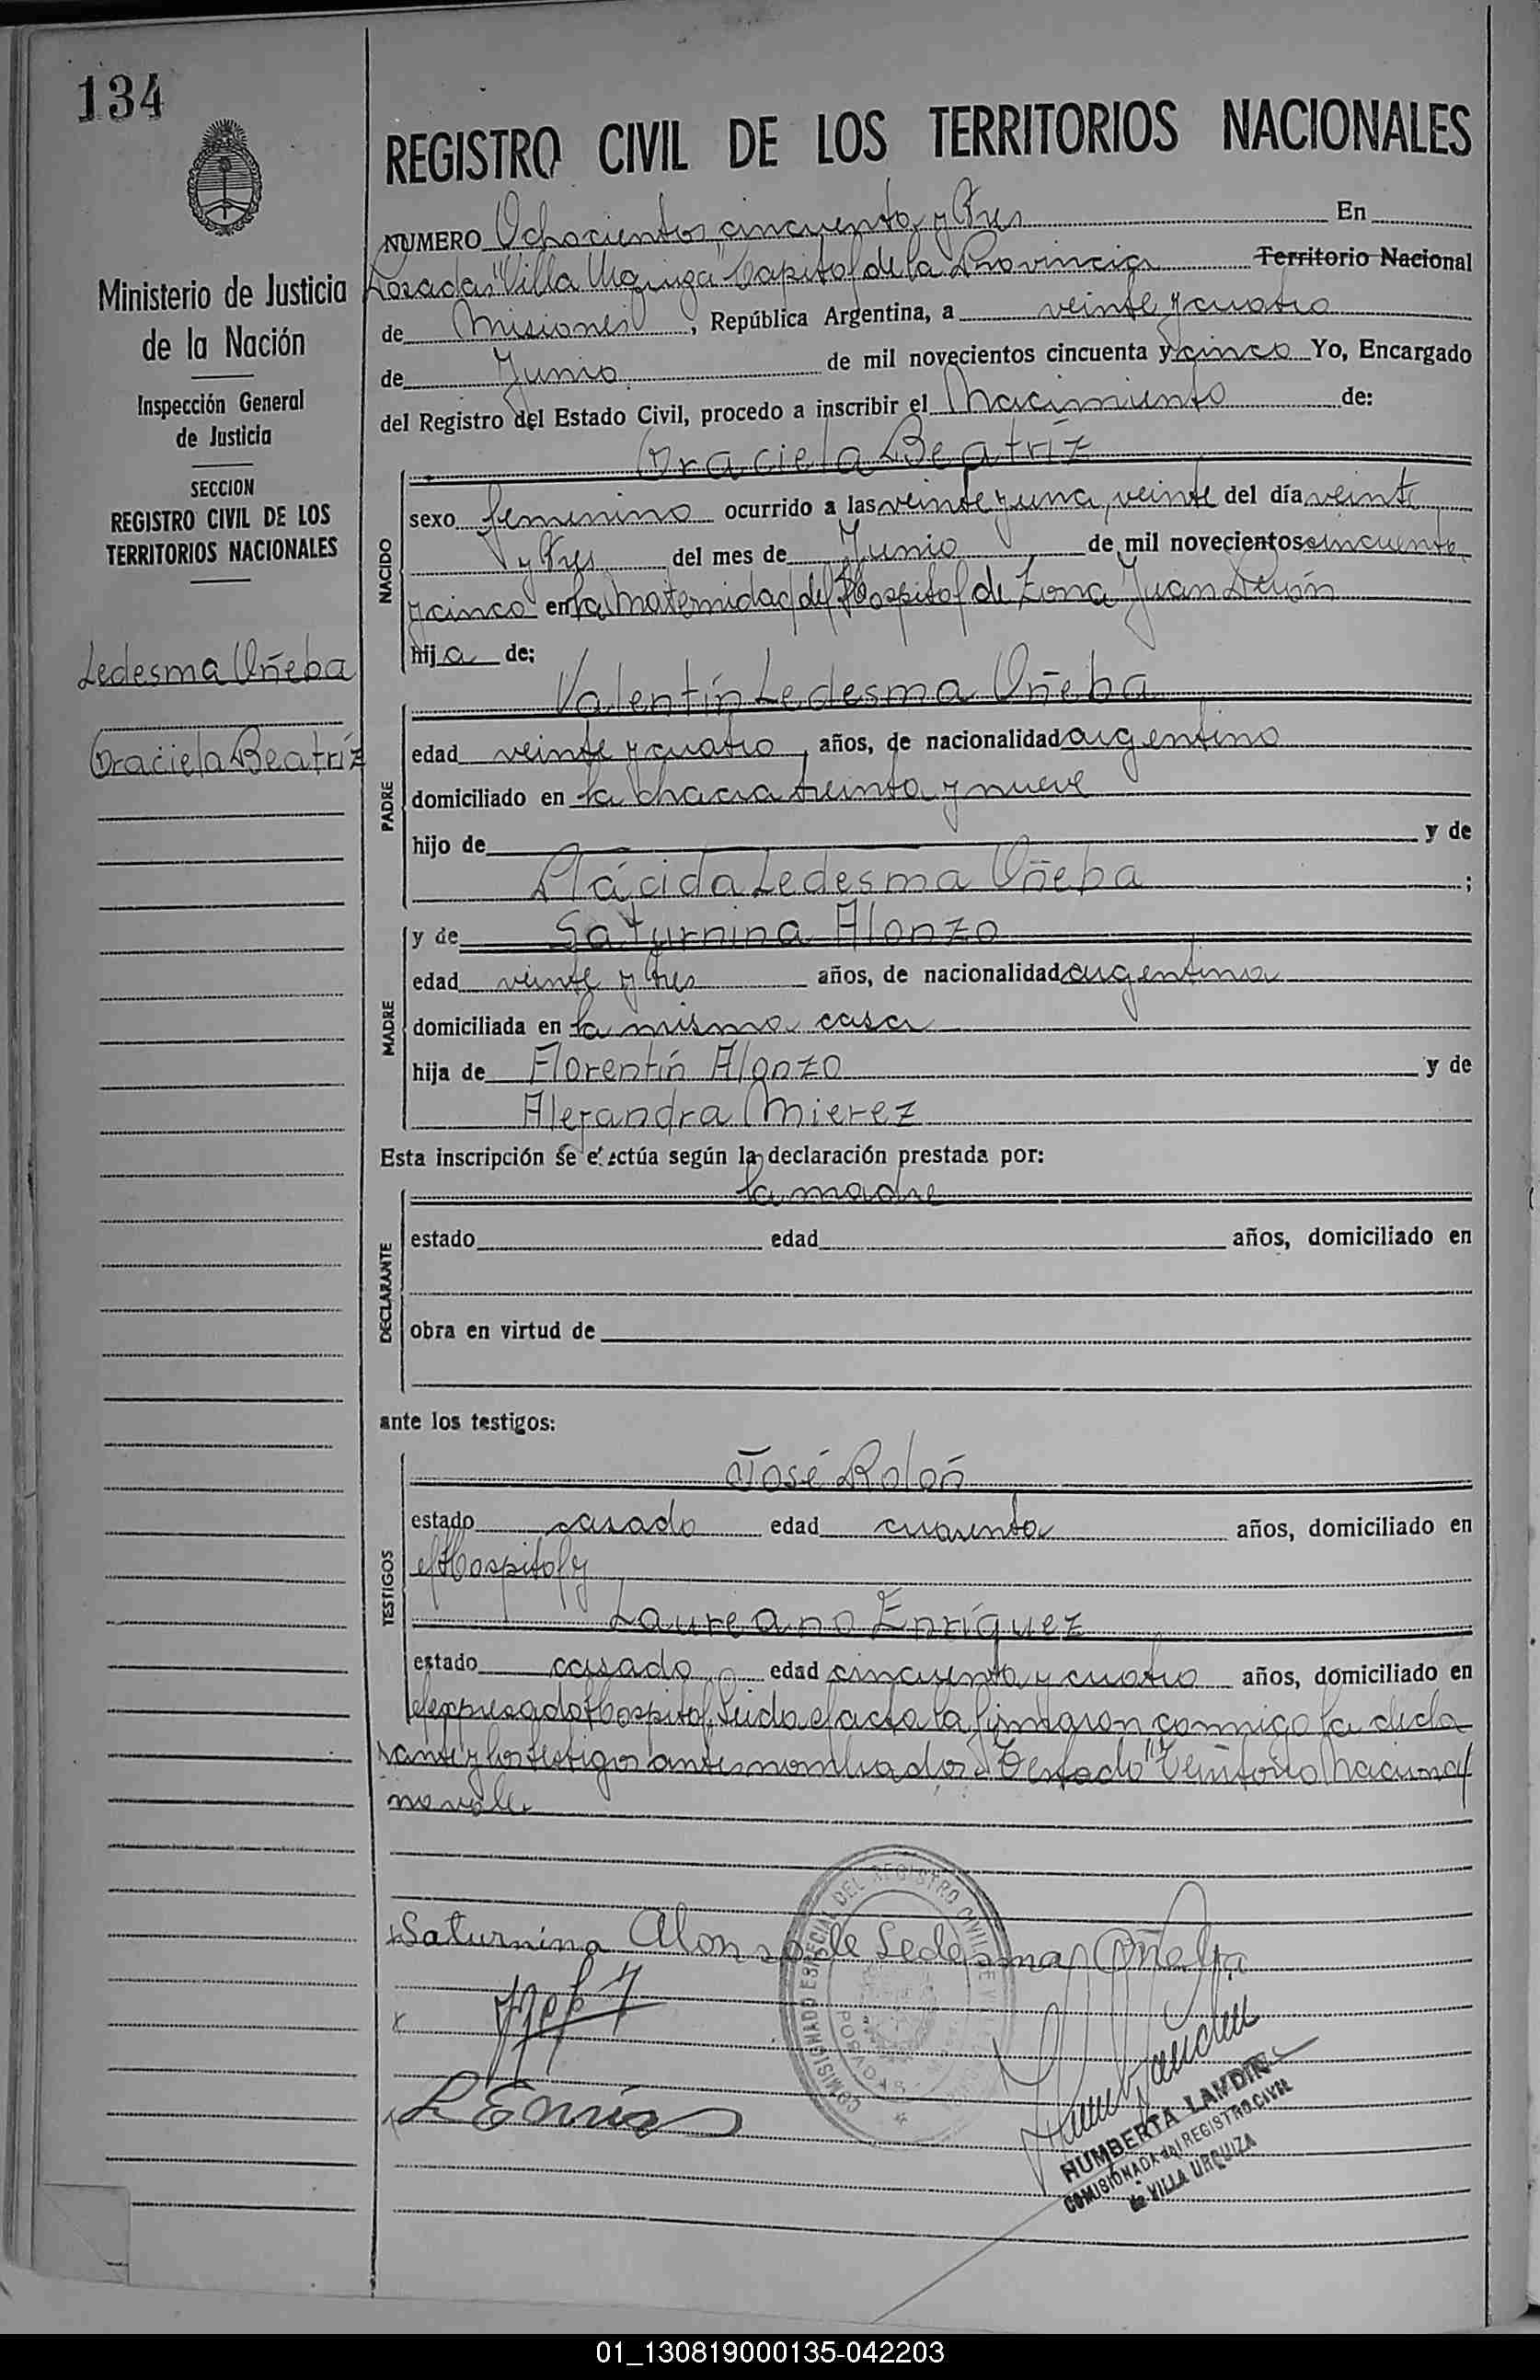 134
REGISTRO CIVIL DE LOS TERRITORIOS NACIONALES
Ministerio de Justicia
de la Nación
Inspección General
de Justicia
SECCION
REGISTRO CIVIL DE LOS
TERRITORIOS NACIONALES
Ledesma Oñeba
Graciela Beatríz
NUMERO Ochocientos cincuenta y tres En
Posadas "Villa Urquiza" Capital de la Provincia Territorio Nacional
de Misiones, República Argentina, a veinte y cuatro
de Junio de mil novecientos cincuenta y cinco Yo, Encargado
del Registro del Estado Civil, procedo a inscribir el Nacimiento de:
Graciela Beatríz
NACIDO
sexo femenino ocurrido a las veinte y una, veinte del día veinte
y tres del mes de Junio de mil novecientos cincuenta
y cinco en la Maternidad del Hospital de Zona Juan Perón
hija de:
Valentín Ledesma Oñeba
PADRE
edad veinte y cuatro, años, de nacionalidad argentino
domiciliado en la chacra treinta y nueve
hijo de y de
Plácida Ledesma Oñeba ;
MADRE
y de Saturnina Alonzo
edad veinte y tres años, de nacionalidad argentina
domiciliada en la misma casa
hija de Florentín Alonzo y de
Alejandra Mierez
Esta inscripción se efectúa según la declaración prestada por:
la madre
DECLARANTE
estado edad años, domiciliado en
obra en virtud de
ante los testigos:
José Rolón
TESTIGOS
estado casado edad cuarenta años, domiciliado en
el Hospital y
Laureano Enríquez
estado casado edad cincuenta y cuatro años, domiciliado en
el expresado Hospital. Leida el acta la firmaron conmigo la decla
rante y los testigos antes nombrados. Testado "Territorio Nacional
no vale.
Saturnina Alonzo de Ledesma Oñeba
COMISIONADO ESPECIAL DEL REGISTRO CIVIL DE VILLA
POSADAS
HUMBERTA LANDIN
COMISIONADA del REGISTRO CIVIL
de VILLA URQUIZA
01_130819000135-042203